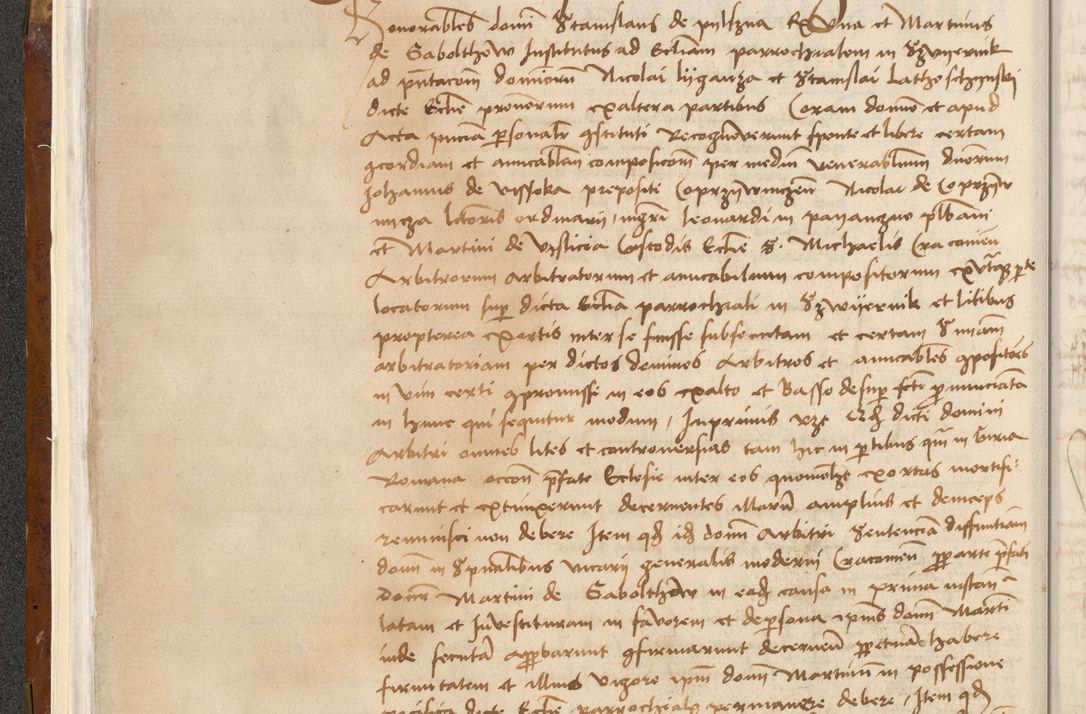 Honorabiles domini Stanislaus de pylszna Ex Vna et Martinus
de Gabolthow Institutus ad Eccliam parrochialem in Szwyernik
ad pntacom dominorum Nicolai lyganza et Stanislai Lathoschynski
dicte Ecclie pronorum exaltera partibus Coram domino et apud
Acta pncia psonalr gstituti Recognoverunt sponte et libere certam
gcordiam et amicablem compositcom per medium venerabilium dnorum
Johannis de Vissoka prepositi Coprzywnicen Nicolai de Coprzyw
nicza lectoris ordinarii, mgri leonardi in payanczno plbani
et Martini de Vislicia Custodis Ecclie S. Michaelis Cracovien
Arbitrorum arbitratorum et amicabilium compositorum ex vtraqz pte
locatorum sup dicta Ecclia parrochiali in Szwyernik et litibus
propterea exortis inter se fuisse subsecutam et certam Sniam
arbitratoriam per dictos dominos Arbitros et amicabiles gpositores
in vim certi gpromissi in eos exalto et Basso desup fcti pnunciata
in hunc qui sequitur modum, Inprimis vze Qd dicti domini
Arbitri omnes lites et controversias tam hic in ptibus qm in Curia
Romana occon pfate Eclesie inter eos quomolzet exortas mortifi-
carunt et extinxerunt decernentes illarum amplius et deinceps
reminisci non debere Item qd id domi Arbitri Sentencia diffinitiam
domi in Spualibus vicarii generalis moderni Cracovien pro parte pfati
Domi Martini de Gabolthow in ead causa in prima instan-
latam et Investituram in favorem et de psona ipius domi Martini
inde secuta approbarunt gfirmarunt decernen ppetuam habere
firmitatem et illius vigore ipm domi Martinum in possessione
pacifica dicte Ecclie parrochialis permanere debere, Item qd